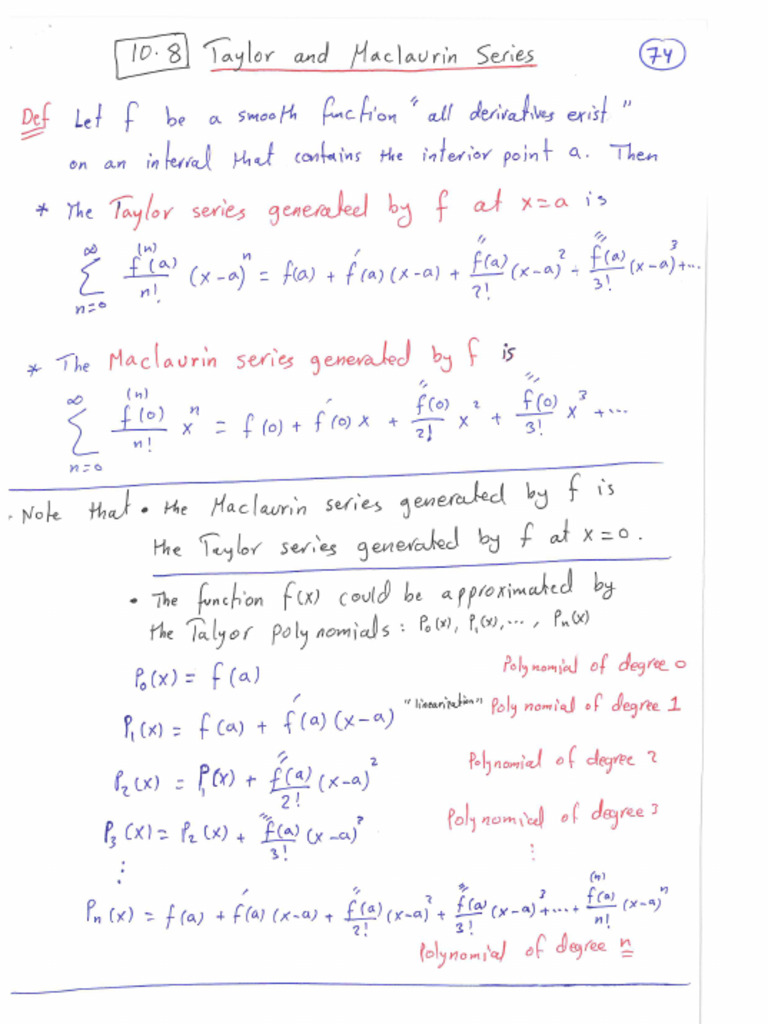 10.8 Taylor and Maclaurin Series 74
Def Let f be a smooth function "all derivatives exist"
on an interval that contains the interior point a. Then
* The Taylor series generated by f at x=a is
∞
∑ f⁽ⁿ⁾(a)/n! (x-a)ⁿ = f(a) + f′(a)(x-a) + f″(a)/2! (x-a)² + f‴(a)/3! (x-a)³+...
n=0
* The Maclaurin series generated by f is
∞
∑ f⁽ⁿ⁾(0)/n! xⁿ = f(0) + f′(0) x + f″(0)/2! x² + f‴(0)/3! x³ + ...
n=0
. Note that • the Maclaurin series generated by f is
the Taylor series generated by f at x=0.
• The function f(x) could be approximated by
the Talyor polynomials: P₀(x), P₁(x), ..., Pₙ(x)
P₀(x) = f(a) Polynomial of degree 0
P₁(x) = f(a) + f′(a)(x-a) "linearization" Polynomial of degree 1
P₂(x) = P₁(x) + f″(a)/2! (x-a)² Polynomial of degree 2
P₃(x) = P₂(x) + f‴(a)/3! (x-a)³ Polynomial of degree 3
⋮ ⋮
Pₙ(x) = f(a) + f′(a)(x-a) + f″(a)/2! (x-a)² + f‴(a)/3! (x-a)³+...+ f⁽ⁿ⁾(a)/n! (x-a)ⁿ
Polynomial of degree n